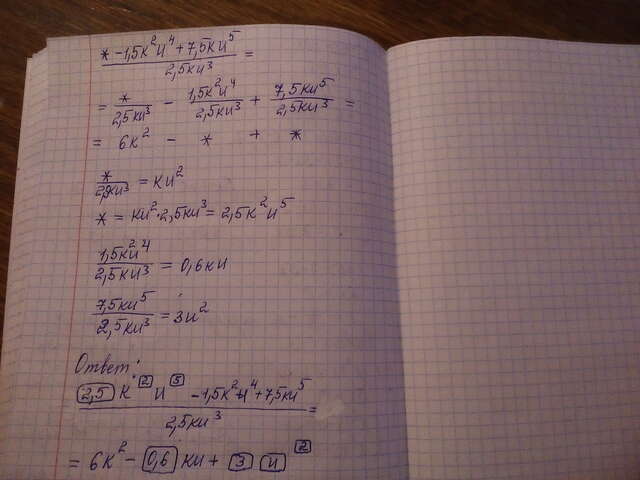 * - 1,5к²и⁴ + 7,5ки⁵ / 2,5ки³ =
= * / 2,5ки³ - 1,5к²и⁴ / 2,5ки³ + 7,5ки⁵ / 2,5ки³ =
= 6к² - * + *
* / 2,5ки³ = ки²
* = ки² · 2,5ки³ = 2,5к²и⁵
1,5к²и⁴ / 2,5ки³ = 0,6ки
7,5ки⁵ / 2,5ки³ = 3и²
Ответ:
2,5 к² и⁵ - 1,5к²и⁴ + 7,5ки⁵ / 2,5ки³ =
= 6к² - 0,6 ки + 3 и ²